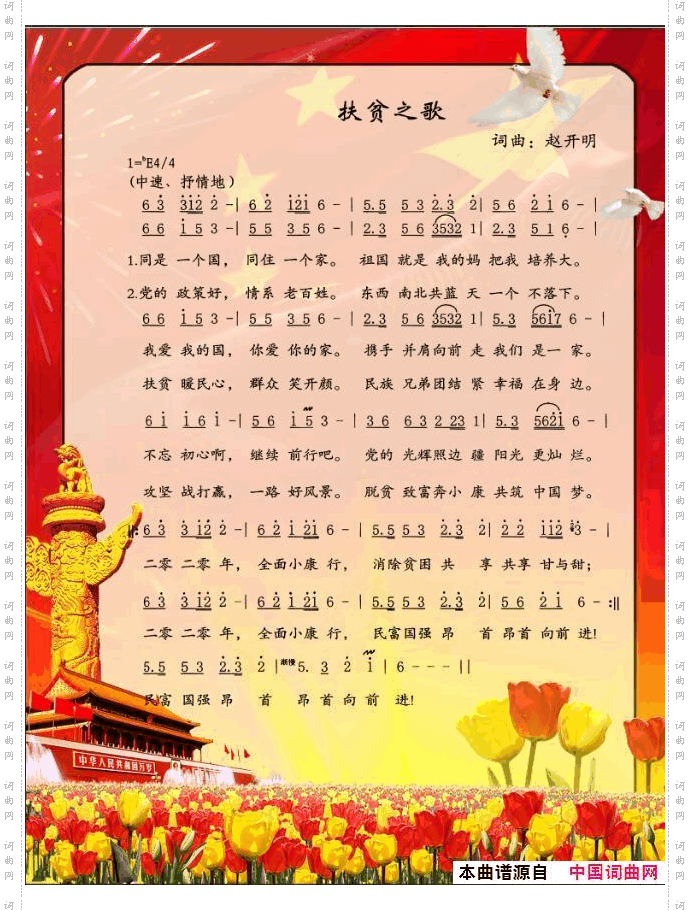 扶贫之歌
词曲：赵开明
1=ᵇE4/4
(中速、抒情地)
6 3 3 1 2 2 - | 6 2 1 2 1 6 - | 5.5 5 3 2.3 2 | 5 6 2 1 6 - |
6 6 1 5 3 - | 5 5 3 5 6 - | 2.3 5 6 3532 1 | 2.3 5 1 6 - |
1.同是 一个国， 同住 一个家。 祖国 就是 我的妈 把我 培养大。
2.党的 政策好， 情系 老百姓。 东西 南北共蓝 天 一个 不落下。
6 6 1 5 3 - | 5 5 3 5 6 - | 2.3 5 6 3532 1 | 5.3 5617 6 - |
我爱 我的国， 你爱 你的家。 携手 并肩向前 走 我们 是一 家。
扶贫 暖民心， 群众 笑开颜。 民族 兄弟团结 紧 幸福 在身 边。
6 1 1 6 1 - | 5 6 1 5 3 - | 3 6 6 3 2 23 1 | 5.3 5621 6 - |
不忘 初心啊， 继续 前行吧。 党的 光辉照边 疆 阳光 更灿 烂。
攻坚 战打赢， 一路 好风景。 脱贫 致富奔小 康 共筑 中国 梦。
‖: 6 3 3 12 2 - | 6 2 1 21 6 - | 5.5 5 3 2.3 2 | 2 2 112 3 - |
二零 二零 年， 全面小康 行， 消除贫困 共 享 共享 甘与甜；
6 3 3 12 2 - | 6 2 1 21 6 - | 5.5 5 3 2.3 2 | 5 6 2 1 6 - :‖
二零 二零 年， 全面小康 行， 民富国强 昂 首 昂首 向前 进!
5.5 5 3 2.3 2 | 渐慢 5. 3 2 1 | 6 - - - ||
民富 国强 昂 首 昂 首 向 前 进!
中华人民共和国万岁
本曲谱源自 中国词曲网
词曲网